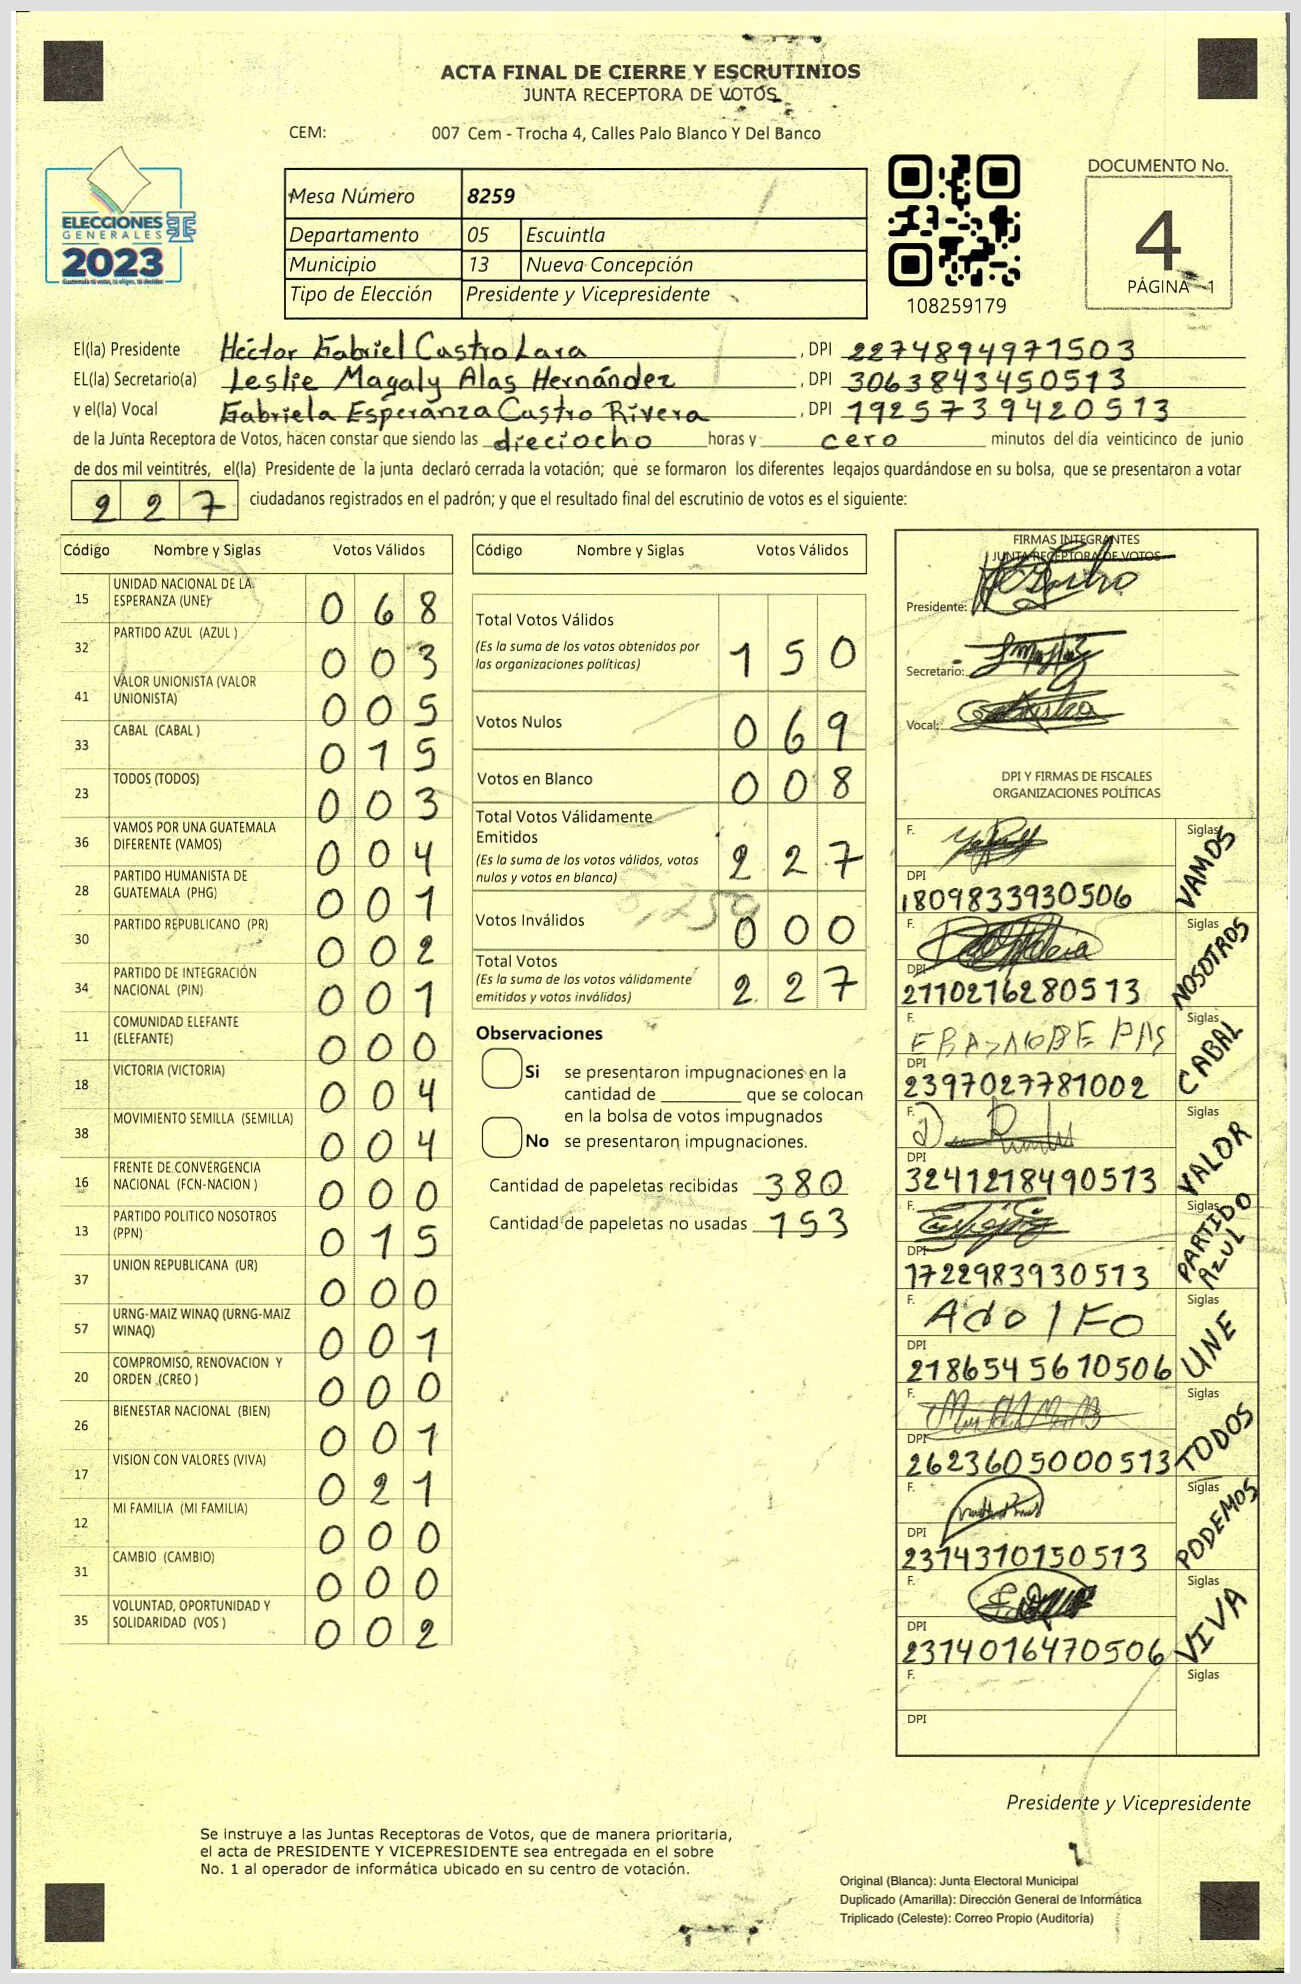 ACTA FINAL DE CIERRE Y ESCRUTINIOS
JUNTA RECEPTORA DE VOTOS
CEM: 007 Cem - Trocha 4, Calles Palo Blanco Y Del Banco
ELECCIONES
GENERALES
2023
Mesa Número 8259
Departamento 05 Escuintla
Municipio 13 Nueva Concepción
Tipo de Elección Presidente y Vicepresidente
108259179
DOCUMENTO No.
4
PÁGINA 1
El(la) Presidente Héctor Gabriel Castro Lara , DPI 2274894971503
EL(la) Secretario(a) Leslie Magaly Alas Hernández , DPI 3063843450513
y el(la) Vocal Gabriela Esperanza Castro Rivera , DPI 1925739420513
de la Junta Receptora de Votos, hacen constar que siendo las dieciocho horas y cero minutos del día veinticinco de junio
de dos mil veintitrés, el(la) Presidente de la junta declaró cerrada la votación; que se formaron los diferentes legajos guardándose en su bolsa, que se presentaron a votar
227 ciudadanos registrados en el padrón; y que el resultado final del escrutinio de votos es el siguiente:
Código Nombre y Siglas Votos Válidos
15 UNIDAD NACIONAL DE LA ESPERANZA (UNE) 068
32 PARTIDO AZUL (AZUL ) 003
41 VALOR UNIONISTA (VALOR UNIONISTA) 005
33 CABAL (CABAL ) 015
23 TODOS (TODOS) 003
36 VAMOS POR UNA GUATEMALA DIFERENTE (VAMOS) 004
28 PARTIDO HUMANISTA DE GUATEMALA (PHG) 001
30 PARTIDO REPUBLICANO (PR) 002
34 PARTIDO DE INTEGRACIÓN NACIONAL (PIN) 001
11 COMUNIDAD ELEFANTE (ELEFANTE) 000
18 VICTORIA (VICTORIA) 004
38 MOVIMIENTO SEMILLA (SEMILLA) 004
16 FRENTE DE CONVERGENCIA NACIONAL (FCN-NACION ) 000
13 PARTIDO POLITICO NOSOTROS (PPN) 015
37 UNION REPUBLICANA (UR) 000
57 URNG-MAIZ WINAQ (URNG-MAIZ WINAQ) 001
20 COMPROMISO, RENOVACION Y ORDEN (CREO ) 000
26 BIENESTAR NACIONAL (BIEN) 001
17 VISION CON VALORES (VIVA) 021
12 MI FAMILIA (MI FAMILIA) 000
31 CAMBIO (CAMBIO) 000
35 VOLUNTAD, OPORTUNIDAD Y SOLIDARIDAD (VOS ) 002
Código Nombre y Siglas Votos Válidos
Total Votos Válidos 150
(Es la suma de los votos obtenidos por
las organizaciones políticas)
Votos Nulos 069
Votos en Blanco 008
Total Votos Válidamente
Emitidos 227
(Es la suma de los votos válidos, votos
nulos y votos en blanco)
Votos Inválidos 000
Total Votos 227
(Es la suma de los votos válidamente
emitidos y votos inválidos)
Observaciones
Si se presentaron impugnaciones en la
cantidad de ________ que se colocan
en la bolsa de votos impugnados
No se presentaron impugnaciones.
Cantidad de papeletas recibidas 380
Cantidad de papeletas no usadas 153
FIRMAS INTEGRANTES
JUNTA RECEPTORA DE VOTOS
Presidente:
Secretario:
Vocal:
DPI Y FIRMAS DE FISCALES
ORGANIZACIONES POLÍTICAS
F. Siglas VAMOS
DPI 1809833930506
F. Siglas NOSOTROS
DPI 2110216280513
F. Siglas CABAL
DPI 2397027781002
F. Siglas VALOR
DPI 3241218490513
F. Siglas PARTIDO AZUL
DPI 1722983930513
F. Adolfo Siglas UNE
DPI 2186545610506
F. Siglas TODOS
DPI 2623605000513
F. Siglas PODEMOS
DPI 2314310150513
F. Siglas VIVA
DPI 2314016470506
F. Siglas
DPI
Presidente y Vicepresidente
Se instruye a las Juntas Receptoras de Votos, que de manera prioritaria,
el acta de PRESIDENTE Y VICEPRESIDENTE sea entregada en el sobre
No. 1 al operador de informática ubicado en su centro de votación.
Original (Blanca): Junta Electoral Municipal
Duplicado (Amarilla): Dirección General de Informática
Triplicado (Celeste): Correo Propio (Auditoría)